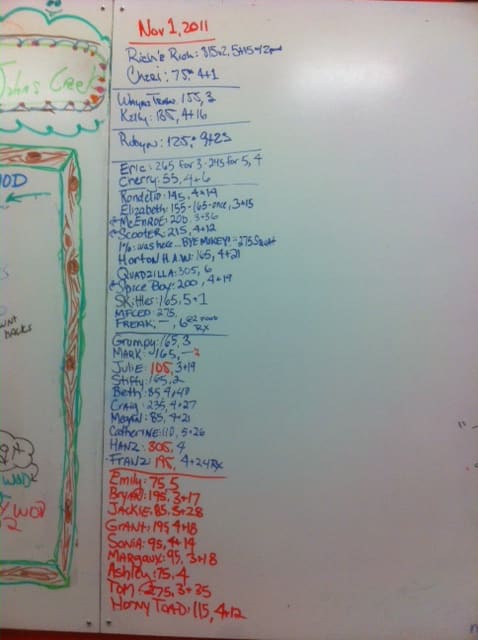 Johns Creek
Nov 1, 2011
Rich's Rich:
Cheri: 75# 4+1
155, 3
Kelly: 135, 4+16
Robyn: 125# 9+23
Eric: 265 for 3 - 245 for 5, 4
Cherry: 55, 4+6
145, 4+19
Elizabeth: 155-165-once, 3+15
McEnroe: 200, 3+36
Scooter: 215, 4+12
1%: was here... BYE MIKEY! - 275 Squat
Horton H.A.W: 165, 4+21
QUADZILLA: 305, 6
Spice Boy: 200, 4+19
Skittles: 165, 5+1
MFCEO: 275,
FREAK, —, 6
Rx
Grumpy: 165, 3
MARK: 165, — ?
JULIE: 105, 3+19
Stiffy: 165, 2
Beth: 85
Craig: 235, 4+27
Megan: 85, 4+21
Catherine: 110, 5+26
HANZ: 305, 4
FRANZ: 195, 4+24 Rx
Emily: 75, 5
Bryan: 195, 3+17
JACKIE: 85, 3+28
GRANT: 195 4+18
SONIA: 95, 4+14
MARGAUX: 95, 3+18
Ashley: 75, 4
TOM C: 275, 3+35
HORNY TOAD: 115, 4+12
WOD
WOD